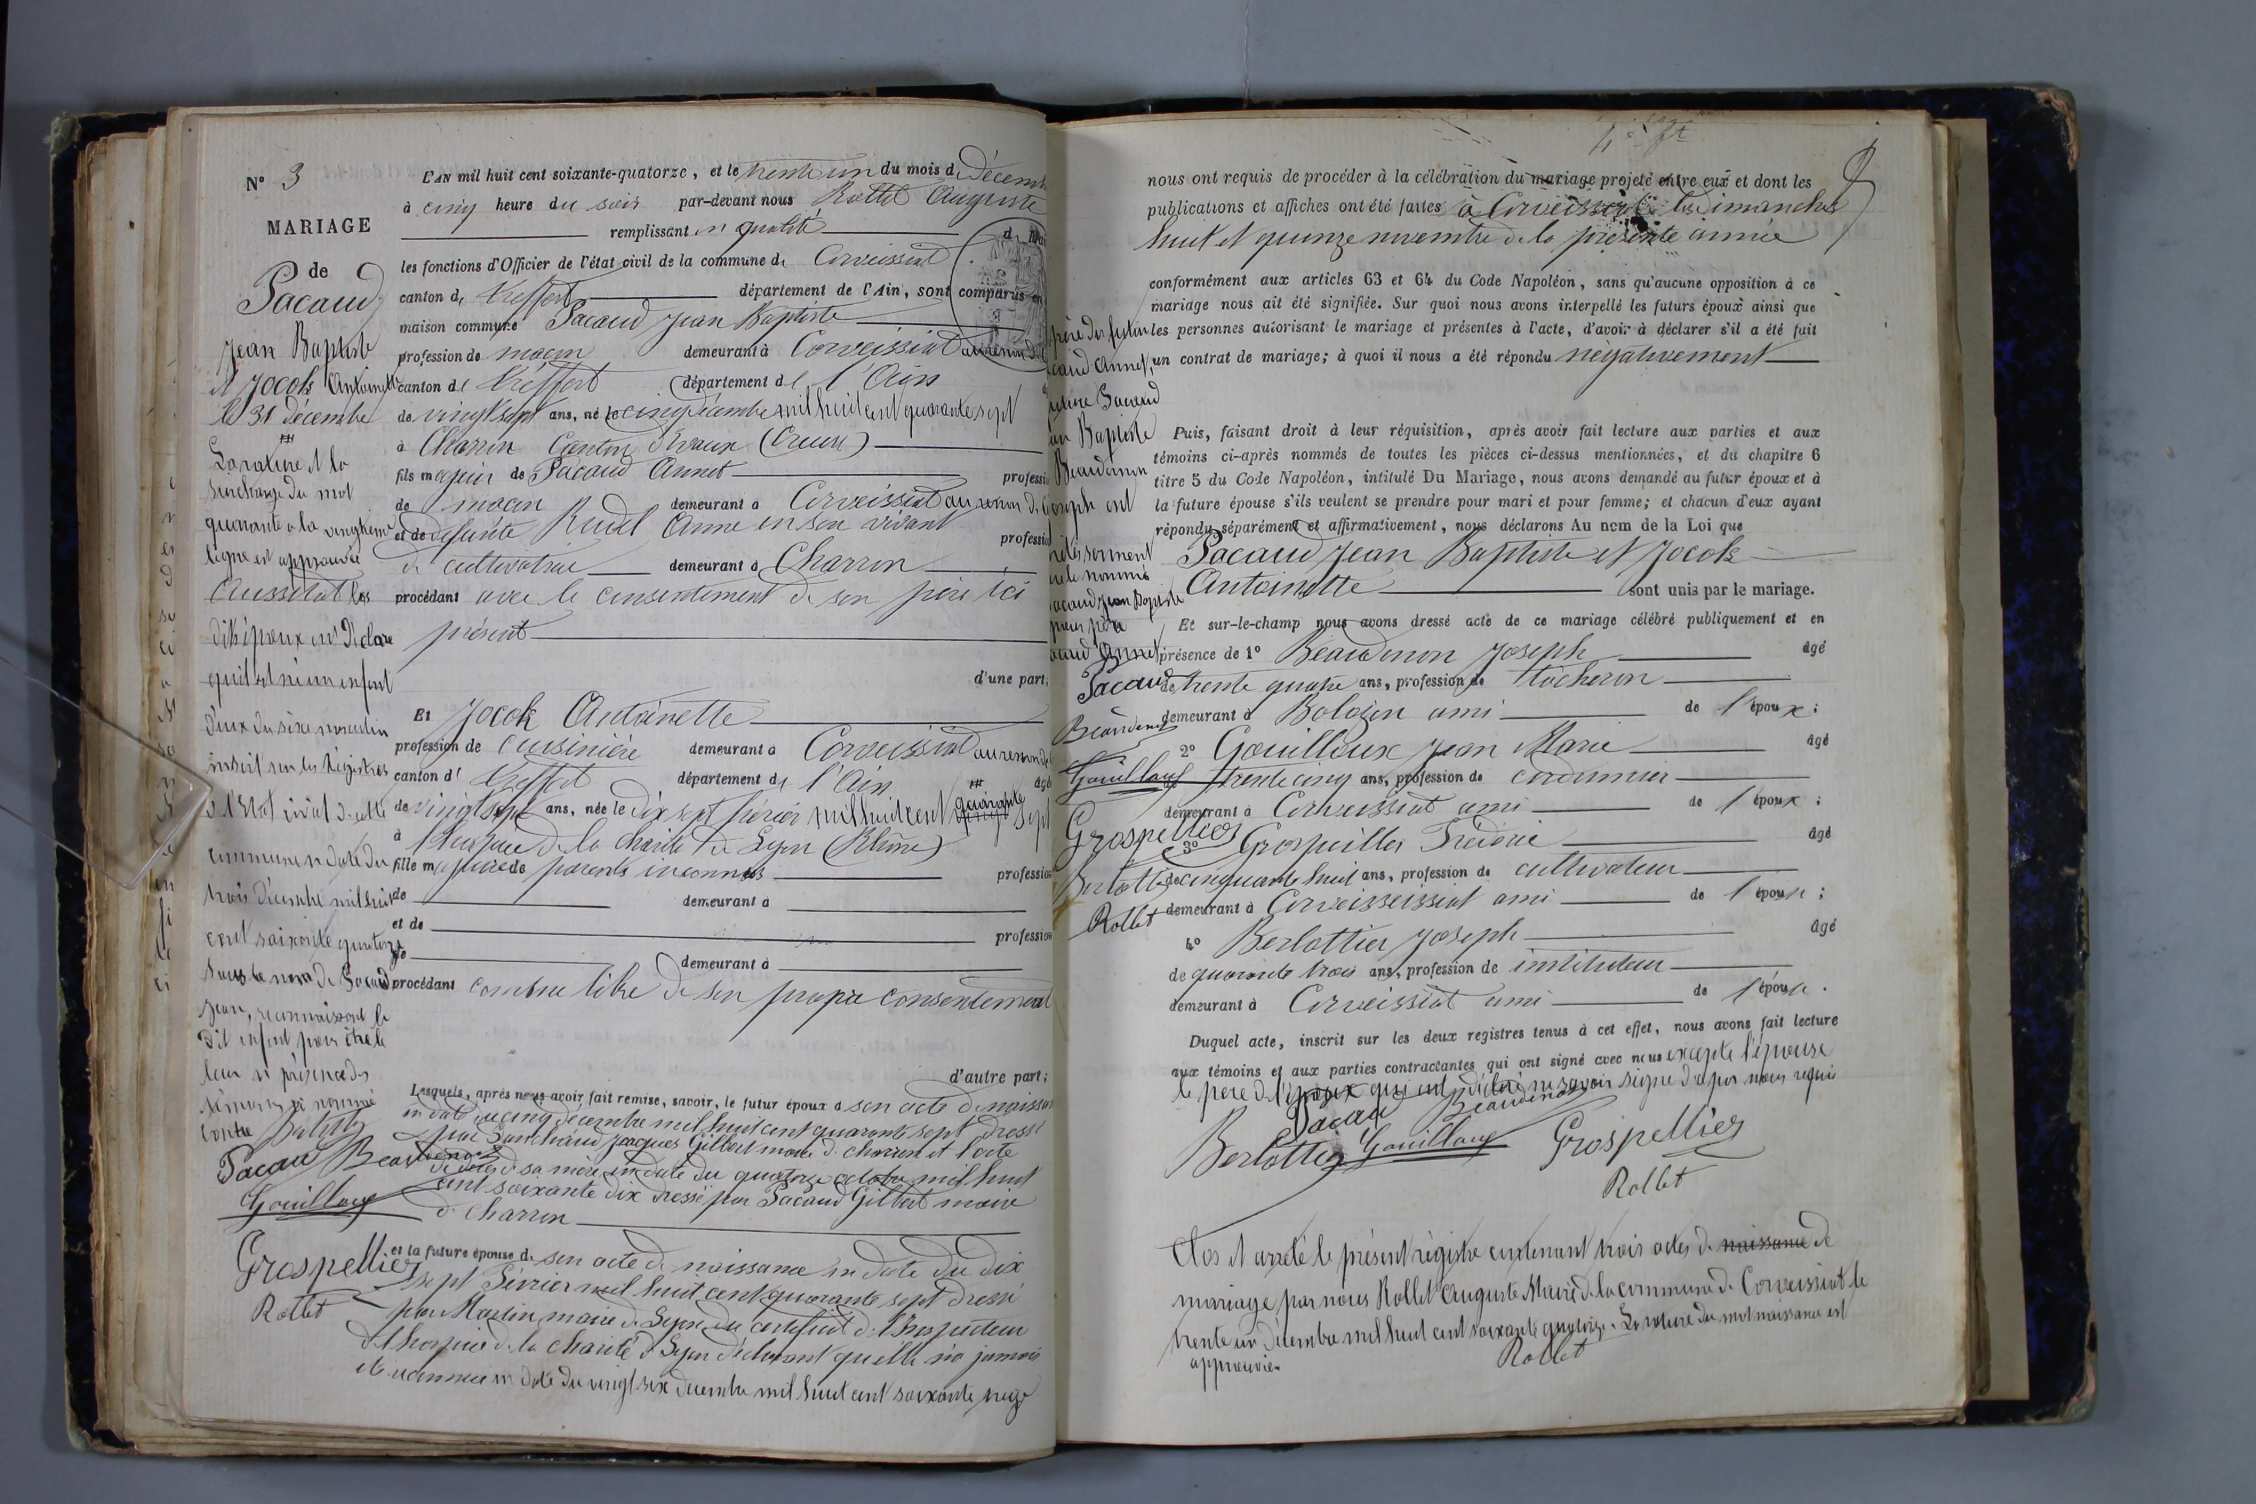 N° 3
MARIAGE
de
Pacaud
Jean Baptiste
et Jocok Antoinette
le 31 décembre
La rature et la
surcharge du mot
quarante a la vingtième
ligne est approuvée
Aussitôt les
dits époux ont déclaré
qu'il est né un enfant
d'eux du sexe masculin
inscrit sur les Régistres
de l'Etat civil de cette
commune en date du
trois décembre mil huit
cent soixante quatorze
sous le nom de Pacaud
Jean, reconnaissant le
dit enfant pour être le
leur en présence des
témoins
Pacaud Beaudenon
Gouilloux
Grospellier
Rollet
L'AN mil huit cent soixante-quatorze, et le trente un du mois de Décembre
à cinq heure du soir par-devant nous Rollet Auguste
remplissant en qualité
les fonctions d'Officier de l'état civil de la commune de Corveissiat
canton de Treffort département de l'Ain, sont comparus en
maison commune Pacaud Jean Baptiste
profession de maçon demeurant à Corveissiat
canton de Treffort département de l'Ain
de vingt sept ans, né le cinq décembre mil huit cent quarante sept
à Charron Canton d'Evaux (Creuse)
fils majeur de Pacaud Annet profession
de maçon demeurant à Corveissiat
et de défunte Rudel Anne en son vivant profession
de cultivatrice demeurant à Charron
procédant avec le consentement de son père ici
présent
d'une part;
Et Jocok Antoinette
profession de cuisinière demeurant à Corveissiat
canton de Treffort département de l'Ain âgé
de vingt sept ans, née le dix sept février mil huit cent quarante sept
à l'hospice de la charité de Lyon (Rhône)
fille majeure de parents inconnus profession
de demeurant à
et de profession
de demeurant à
procédant comme libre de son propre consentement
d'autre part;
Lesquels, après nous avoir fait remise, savoir, le futur époux de son acte de naissance
en date du cinq décembre mil huit cent quarante sept dressé
par Jacques Gilbert maire de charron et l'acte
de décès de sa mère en date du quatorze octobre mil huit
cent soixante dix dressé par Pacaud Gilbert maire
de Charron
et la future épouse de son acte de naissance en date du dix
sept février mil huit cent quarante sept dressé
par Martin maire de Lyon du certificat de l'Inspecteur
de l'hospice de la charité de Lyon déclarant quelle n'a jamais
été reconnue en date du vingt six décembre mil huit cent soixante treize
nous ont requis de procéder à la célébration du mariage projeté entre eux et dont les
publications et affiches ont été faites à Corveissiat les dimanches
huit et quinze novembre de la présente année
conformément aux articles 63 et 64 du Code Napoléon, sans qu'aucune opposition à ce
mariage nous ait été signifiée. Sur quoi nous avons interpellé les futurs époux ainsi que
les personnes autorisant le mariage et présentes à l'acte, d'avoir à déclarer s'il a été fait
un contrat de mariage; à quoi il nous a été répondu négativement
Puis, faisant droit à leur réquisition, après avoir fait lecture aux parties et aux
témoins ci-après nommés de toutes les pièces ci-dessus mentionnées, et du chapitre 6
titre 5 du Code Napoléon, intitulé Du Mariage, nous avons demandé au futur époux et à
la future épouse s'ils veulent se prendre pour mari et pour femme; et chacun d'eux ayant
répondu séparément et affirmativement, nous déclarons Au nom de la Loi que
Pacaud Jean Baptiste et Jocok
Antoinette sont unis par le mariage.
Et sur-le-champ nous avons dressé acte de ce mariage célébré publiquement et en
présence de 1° Beaudenon Joseph âgé
de trente quatre ans, profession de
demeurant à Bolozon ami de l'époux;
2° Gouilloux Jean Marie âgé
de trente cinq ans, profession de cordonnier
demeurant à Corveissiat ami de l'époux;
3° Grospellier Frédéric âgé
de cinquante huit ans, profession de cultivateur
demeurant à Corveisseissiat ami de l'épouse;
4° Berlottier Joseph âgé
de quarante trois ans, profession de instituteur
demeurant à Corveissiat ami de l'épouse.
Duquel acte, inscrit sur les deux registres tenus à cet effet, nous avons fait lecture
aux témoins et aux parties contractantes qui ont signé avec nous excepté l'épouse
le père de l'époux qui ont déclaré ne savoir signé de par nous requis
Pacaud Beaudenon
Berlottier Gouilloux Grospellier
Rollet
père des futurs
Pacaud Jean Baptiste
Pacaud Annet
Pacaud
Beaudenon
Gouilloux
Grospellier
Berlottier
Rollet
Clos et arrêté le présent régistre contenant trois actes de naissance de
mariage par nous Rollet Auguste Maire de la commune de Corveissiat le
trente un décembre mil huit cent soixante quatorze. La rature du mot naissance est
approuvée.
Rollet